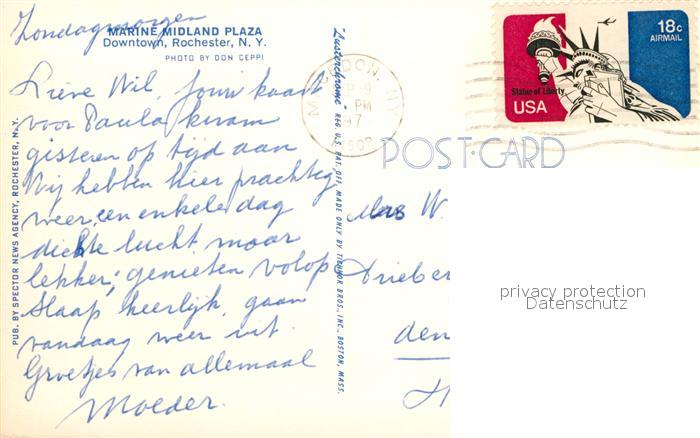 Zondagmorgen
MARINE MIDLAND PLAZA
Downtown, Rochester, N. Y.
PHOTO BY DON CEPPI
Lieve Wil, jouw kaart
voor Paula kwam
gisteren op tijd aan
Wij hebben hier prachtig
weer, een enkele dag
dichte lucht maar
lekker, genieten volop
slaap heerlijk, gaan
vandaag weer uit.
Groetjes van allemaal
Moeder.
PUB. BY SPECTOR NEWS AGENCY, ROCHESTER, N.Y.
Lusterchrome REG U.S. PAT. OFF. MADE ONLY BY TICHNOR BROS., INC., BOSTON, MASS.
NY
PM
18c
AIRMAIL
Statue of Liberty
USA
POST-CARD
W.
Drieber
den
privacy protection
Datenschutz